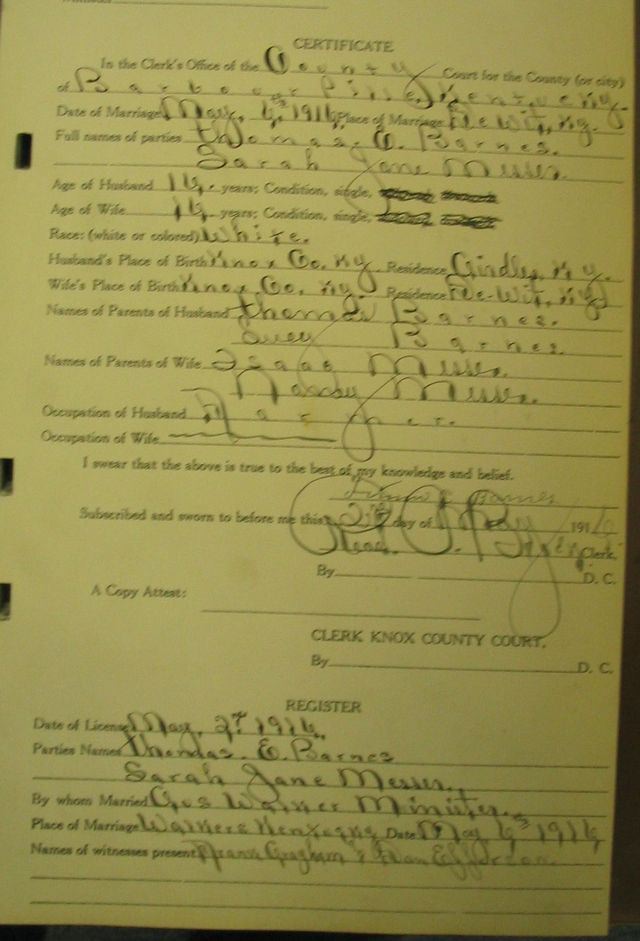 CERTIFICATE
In the Clerk's Office of the County Court for the County (or city)
of Barbourville, Kentucky.
Date of Marriage May, 6th 1916, Place of Marriage De Wit, Ky.
Full names of parties Thomas. E. Barnes.
Sarah Jane Messer.
Age of Husband years; Condition, single,
Age of Wife years; Condition, single,
Race: (white or colored) White.
Husband's Place of Birth Knox Co. Ky. Residence Lindsy, Ky.
Wife's Place of Birth Knox Co. Ky. Residence De-Wit, Ky
Names of Parents of Husband Thomas Barnes.
Lucy Barnes.
Names of Parents of Wife Isaac Messer.
Nancy Messer.
Occupation of Husband Farmer.
Occupation of Wife
I swear that the above is true to the best of my knowledge and belief.
Barnes
Subscribed and sworn to before me this 2nd day of May 1916
Read. Clerk.
By D. C.
A Copy Attest:
CLERK KNOX COUNTY COURT.
By D. C.
REGISTER
Date of License May, 2nd 1916.
Parties Names Thomas. E. Barnes
Sarah Jane Messer.
By whom Married Walker Minister.
Place of Marriage Walkers Kentucky Date May 6th 1916
Names of witnesses present Frank Graham & Dan Efferson